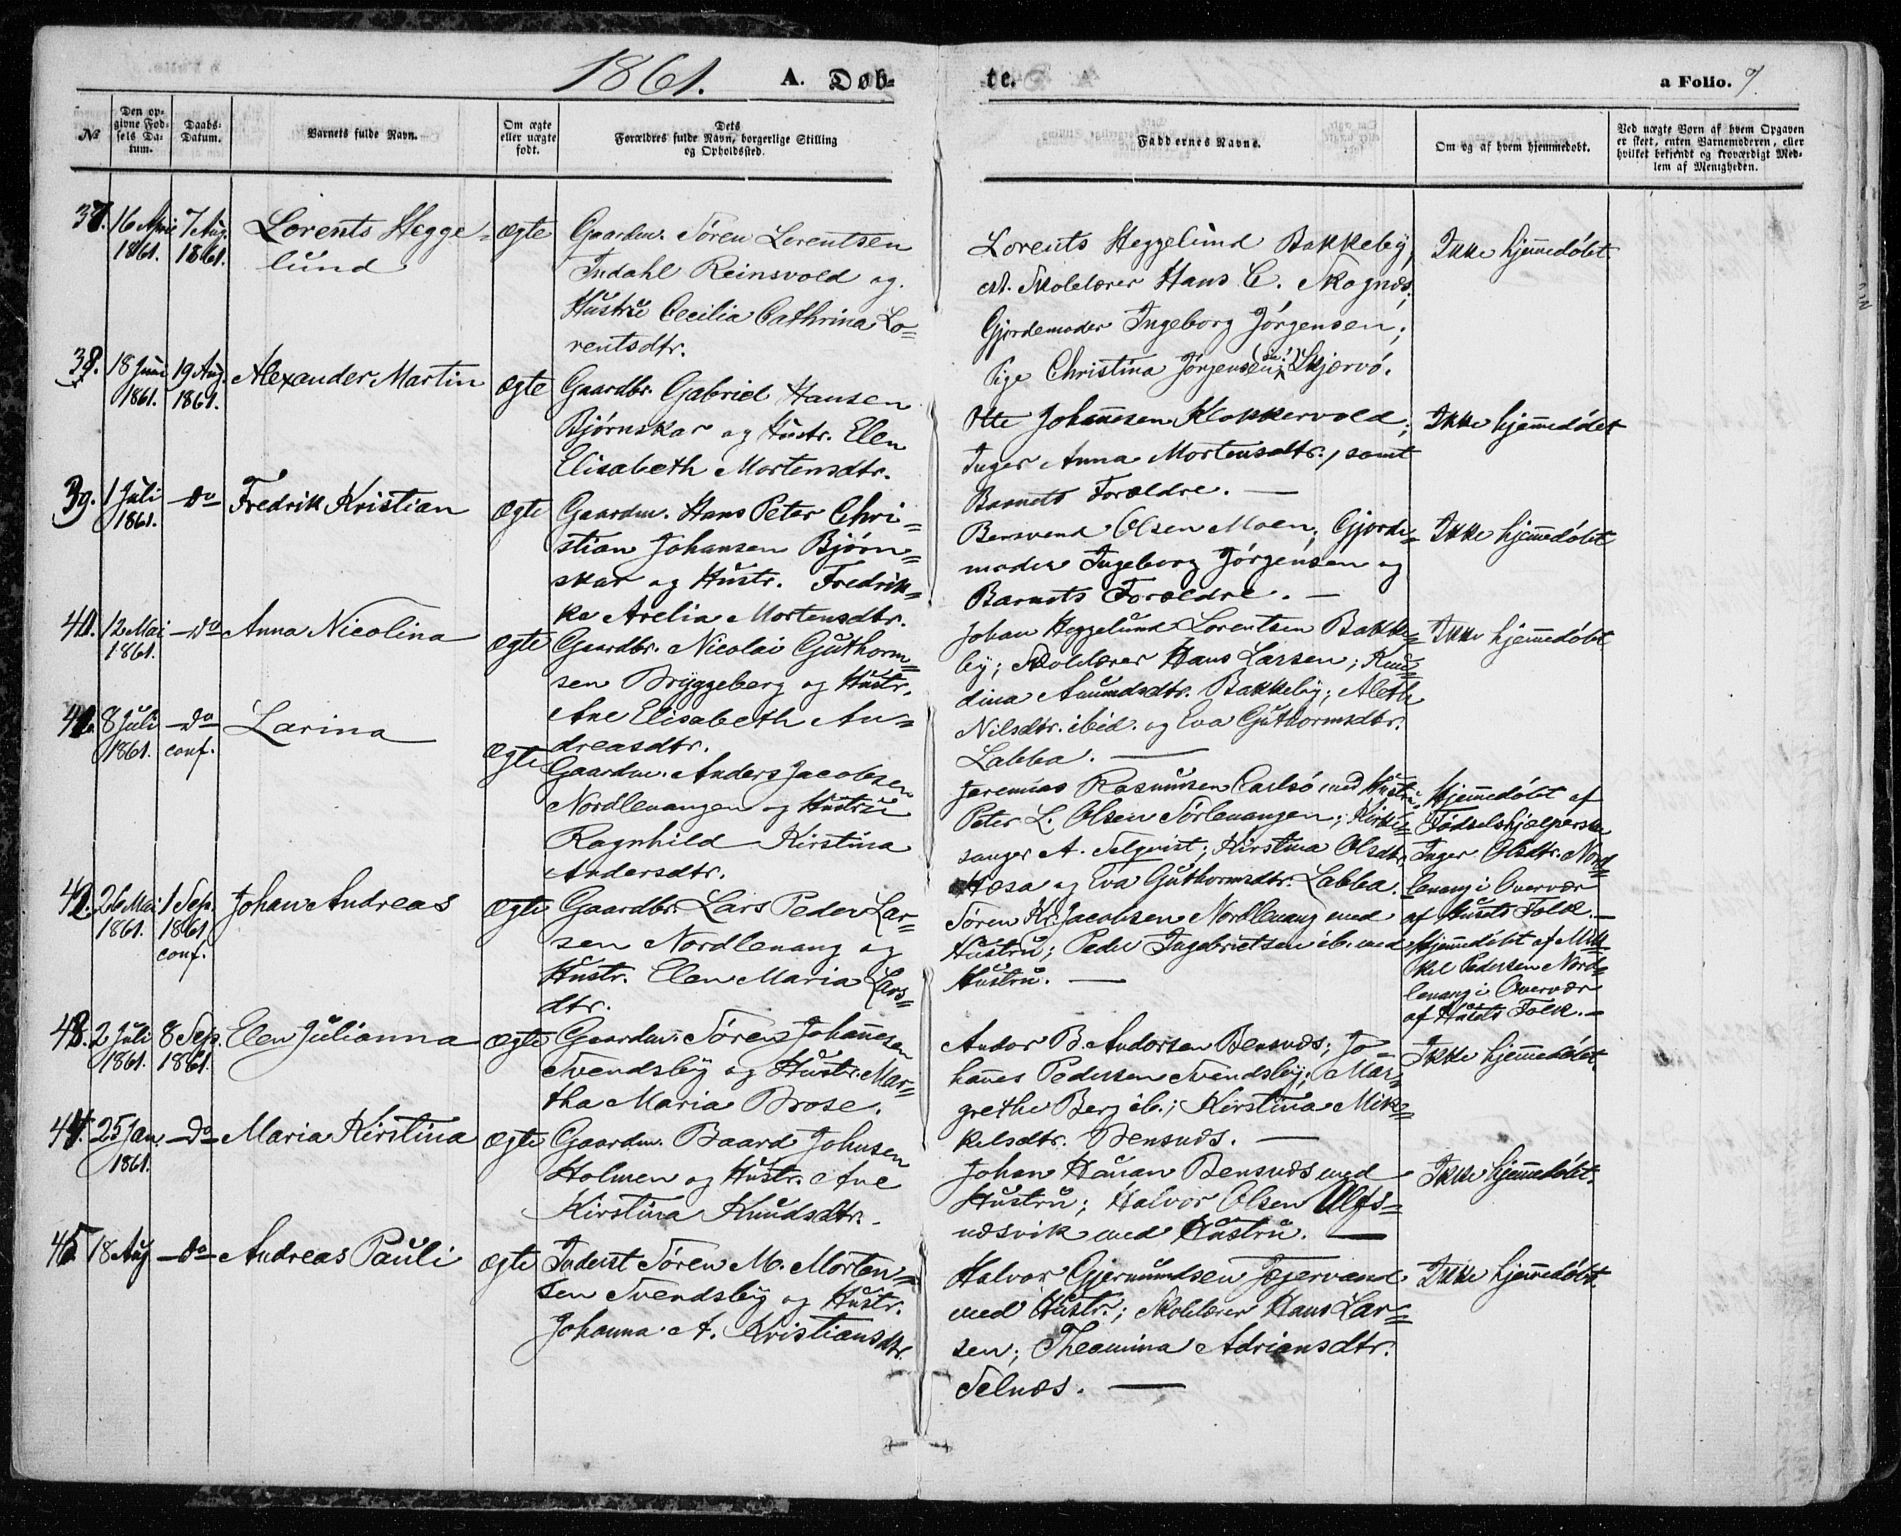 1861. A. Døb- te. a Folio. 7.
No
Den op-
givne Fød-
sels Da-
tum.
Daabs-
Datum.
Barnets fulde Navn.
Om ægte
eller uægte
født.
Dets
Forældres fulde Navn, borgerlige Stilling
og Opholdssted.
Faddernes Navne.
Om og af hvem hjemmedøbt.
Ved uægte Børn af hvem Opgaven
er skeet, enten Barnemoderen, eller
hvilket bekjendt og troværdigt Med-
lem af Menigheden.
37.
16 April
1861.
7 Aug.
1861.
Lorents Hegge-
lund
ægte
Gaardm. Søren Lorentsen
Indahl Reinsvold og
Hustru Cecilia Cathrina Lo-
rentsdtr.
Lorents Heggelund Bakkeby,
Skolelærer Hans C. Skognæs;
Gjordemoder Ingeborg Jørgensen;
Pige Christina Jørgensen, Skjervø.
Ikke hjem̄edøbt
38.
18 Juni
1861.
19 Aug.
1861.
Alexander Martin
ægte
Gaardbr. Gabriel Hansen
Bjørnskar og Hustr. Elen
Elisabeth Mortensdtr.
Otte Johan̄esen Klokkervold;
Inger Anna Mortensdtr., samt
Barnets Forældre. —
Ikke hjem̄edøbt
39.
1 Juli
1861.
—do—
Fredrik Kristian
ægte
Gaardm. Hans Peter Chri-
stian Johansen Bjørn-
skar og Hustr. Fredrik-
ke Arelia Mortensdtr.
Bersvend Olsen Moen; Gjorde-
moder Ingeborg Jørgensen og
Barnets Forældre. —
Ikke hjem̄edøbt
40.
12 Mai
1861.
—do—
Anna Nicolina
ægte
Gaardbr. Nicolai Guthorm-
sen Bryggeberg og Hustr.
Ane Elisabeth An-
dreasdtr.
Johan Heggelund Lorentsen Bakke-
by; Skolelærer Hans Larsen; Knu-
dina Amundsdtr. Bakkeby; Aleth
Nilsdtr. ibid. og Eva Guthormsdtr.
Labba. —
Ikke hjem̄edøbt
41.
8 Juli
1861.
—do—
conf.
Larina
ægte
Gaardm. Anders Jacobsen
Nordlenangen og Hustru
Ragnhild Kirstina
Andersdtr.
Jeremias Rasmusen Carlsø med Hustru;
Peter L. Olsen Sørlenangen; Kirke-
sanger A. Selqvist; Kirstina Olsdtr.
Hæsa og Eva Guthormsdtr. Labba.
Hjem̄edøbt af
Fødselshjælperske
Inger Olsdtr. Nord-
lenang i Overvær
af Husets Folk. —
42.
26 Mai
1861.
1 Sep.
1861
conf.
Johan Andreas
ægte
Gaardbr. Lars Peder Lar-
sen Nordlenang og
Hustr. Elen Maria Lars-
dtr.
Søren Kr. Jacobsen Nordlenang med
Hustru; Peder Ingebrietsen ib. med
Hustru. —
Hjem̄edøbt af Mik-
kel Pedersen Nord-
lenang i Overvær
af Husets Folk. —
43.
2 Juli
1861.
8 Sep.
1861.
Elen Julianna
ægte
Gaardm. Søren Johan̄esen
Svendsby og Hustr. Mar-
tha Maria Brose.
Andor B. Andorsen Bensnæs; Jo-
han̄es Pedersen Svendsby; Mar-
grethe Berg ib.; Kirstina Mik-
kelsdtr. Bensnæs. —
Ikke hjem̄edøbt
44.
25 Jan.
1861.
—do—
Maria Kirstina
ægte
Gaardm. Baard Johnsen
Holmen og Hustr. Ane
Kirstina Knudsdtr.
Johan Hansen Bensnæs med
Hustru; Halvor Olsen Ulfs-
næsvik med Hustru. —
Ikke hjem̄edøbt.
45
18 Aug
—do—
Andreas Pauli
ægte
Inderst Søren M. Morten-
sen Svendsby og Hustr.
Johanna A. Kristiansdtr.
Halvor Gjermundsen Jægervand
med Hustr.; Skolelærer Hans Lar-
sen; Theamina Adriansdtr.
Selnæs. —
Ikke hjem̄edøbt.